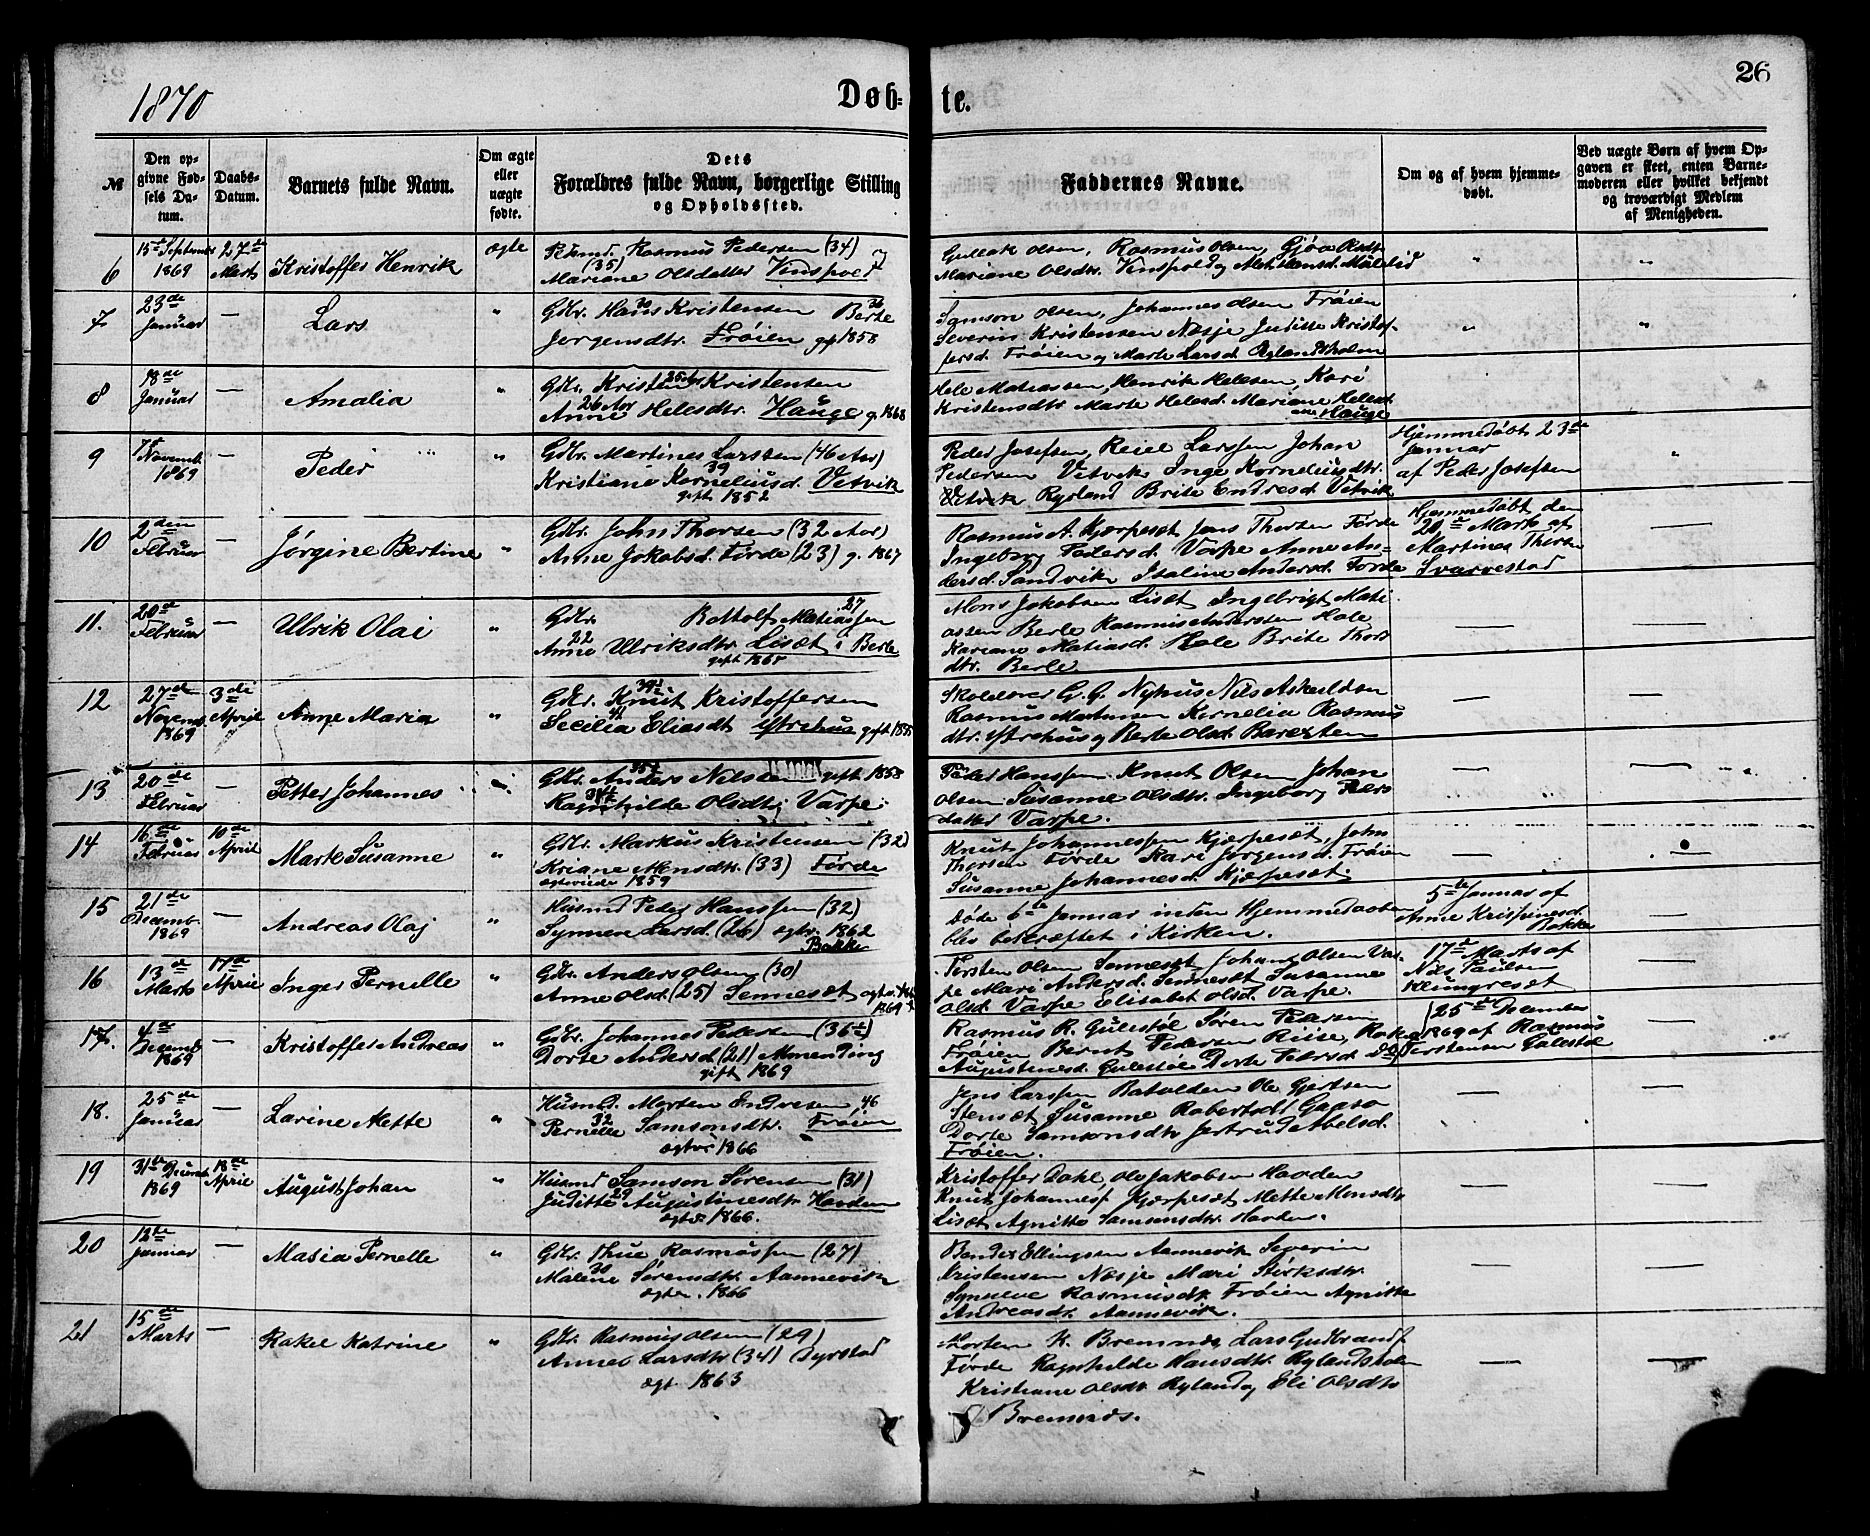 26
1870
Døb- te.
№
Den op-
givne Fød-
sels Da-
tum.
Daabs-
Datum.
Barnets fulde Navn.
Om ægte
eller
uægte
fødte.
Dets
Forældres fulde Navn, borgerlige Stilling
og Opholdssted.
Faddernes Navne.
Om og af hvem hjemme-
døbt.
Ved uægte Børn af hvem Op-
gaven er skeet, enten Barne-
moderen eller hvilket bekjendt
og troværdigt Medlem
af Menigheden.
6
15de Septemb
1869
27de
Marts
Kristoffer Henrik
ægte
Rasmus Pedersen (34)
(35)
Mariane Olsdatter
Gullak Olsen, Rasmus Olsen, Gjøa Olsdtr
Mariane Olsdtr.
7
23de
Januar
—
Lars
"
Gdbr. Hans Kristensen Berte
30 36
Jørgensdtr. Frøien gift 1858
Samson Olsen, Johannes Olsen Frøien
Severin Kristensen Næsje Juditte Kristof-
fersd. Frøien og Marte Larsd. Rylandsholm
8
18de
Januar
—
Amalia
"
Gdbr. Kristen Kristensen
26 Aar
Anne Helesdtr. Hauge g. 1868
Hele Matiassen, Henrik Helesen, Kari
Kristensdtr Marte Helesd. Mariane Helesd.
Hauge
9
Novemb.
1869
—
Peder
"
Gdbr. Martines Larssen (46 Aar)
39
Kristiane Korneliusd. Vetvik
gift 1852
Peder Josefsen, Reiel Larssen Johan
Pedersen Vetvik Inge Korneliusdtr.
Ryland Brite Endresd. Vetvik
Hjemmedøbt 23de
Januar
af Peder Josefsen
10
2den
Februar
—
Jørgine Bertine
"
Gdbr. John Thorsen (32 Aar)
Anne Jakobsd. Førde (23) g. 1867
Rasmus A. Kjærpeset Jens Thorsen Førde
Ingeborg Pedersd. Varpe Anne An-
dersd. Sandvik Italine Andersd. Førde
Hjemmedøbt den
20de Marts af
Martines Thorsen
Svarvestad
—
11.
20de
Februar
—
Ulrik Olai
"
Gdbr. Rottolf Matiassen
27
22
Anne Ulriksdtr. Liset i Berle
gift 1868
Mons Jakobsen Liset Ingebrigt Mati-
assen Berle Rasmus Andersen Hole
Kariane Matiasd. Hole Brite Thors
dtr. Berle
—
—
12
27de
Novemb.
1869
3die
April
Anne Maria
"
Gdbr. Knut Kristoffersen
41
Secilia Eliasdt Ytrehus gift 1855
Skolelærer G. G. Nyhus Nils Askildsen
Rasmus Martinusen Kornelia Rasmus
dtr. Ytrehus og Berte Olsd.
—
—
13
20de
Februar
—
Petter Johannes
"
Gdbr. Anders Nilsen gift 1858
Ragnhilde Olsdtr. Varpe
Peder Hanssen Knut Olsen Johan
Olsen Susanne Olsdtr. Ingeborg Peders
datter Varpe.
14
16de
Februar
10de
April
Marte Susanne
"
Gdbr. Markus Kristensen (32)
Kriane Monsdtr. (33) Førde
1859
Knut Johannessen Kjærpesæt, John
Thorsen Førde Kari Jørgensd. Frøien
Susanne Johannesd. Kjærpesæt.
—
—
15
21de
Decemb.
1869
—
Andreas Olaj
"
Husmd Peder Hanssen (32)
Synneve Larsd. (26) ægtv. 1862
Bakke
Døde 6te Januar inden Hjemmedaaben
blev bekræftet i Kirken.
5te Januar af
Anne Krispinusd.
Bakke
—
16
13de
Marts
17de
April
Inger Pernelle
"
Gdbr. Anders Olsen (30)
Anne Olsd. (25) Sennesæt
1869
Torsten Olsen Senneset Johan Olsen Var-
pe Mari Andersd. Senneset Susanne
Olsd. Varpe Elisabet Olsd. Varpe.
17de Marts af
Nils Paulsen
Klungreset
—
17.
4de
Decemb
1869
—
Kristoffer Andreas
"
Gdbr. Johannes Petersen (36)
Dorte Andersd (21) Almending
gift 1869
Rasmus R. Gulestøl Søren Petersen
Frøien Bernt Pedersen Riise, Rakel
Augustinesd. Gulestøl Dorte Petersd. do
25de December
1869 af Rasmus
Torstensen Gulestøl
—
18.
25de
Januar
—
Larine Mette
"
Husmd. Morten Endresen, 46
32
Pernelle Samsonsdtr. Frøien
ægtev 1866
Jens Larssen Batalden Ole Gjertsen
Stensæt Susanne Robertsdtr Gaasø
Dorte Samsonsdtr Jertrud Abelsd.
Frøien.
—
—
19
31te Decemb
1869
18de
April
August Johan
"
Husmd Samson Sørensen (31)
29
Juditte Augustinesdtr Havden
ægtv. 1866.
Kristoffer Dahl, Ole Jakobsen Havden
Knut Johanness. Kjærpesæt Mette Monsdtr
Liset Agnitte Samsonsdtr. Havden.
—
—
20
12te
Januar
—
Masia Pernelle
"
Gdbr. Thue Rasmussen (27)
30
Malene Sørensdtr. Aannevik
ægtev. 1866
Bendix Ellingsen Aannevik Severin
Kristensen Næsje Mari
Synneve Rasmusdtr Frøien Agnitte
Andreasdtr. Aannevik.
—
—
21
15de
Marts
—
Rakel Katrine
"
Gdbr. Rasmus Olsen (29)
Anne Larsdtr (34) Dyrstad
ægt 1863
Morten K. Bremnes, Lars Gudbrands.
Førde Ragnhilde Hansdtr. Rylandsholm
Kristiane Olsdtr Ryland og Eli Olsdtr
Bremnes.
—
—